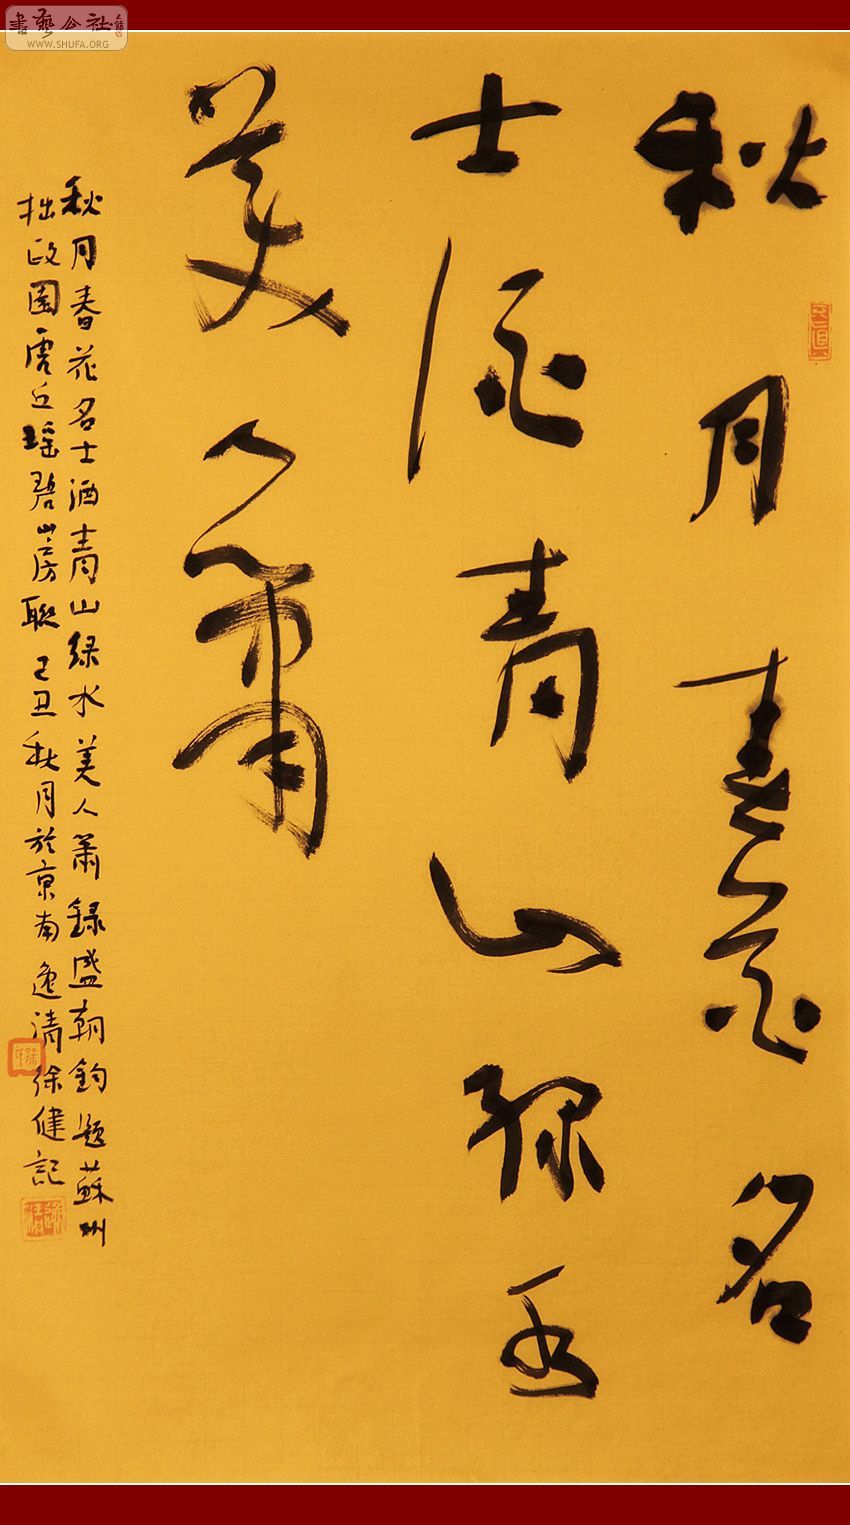 書藝公社
WWW.SHUFA.ORG
秋月春花名
士酒青山緑水
美人簫
秋月春花名士酒青山緑水美人簫録盛朝钧题蘇州
拙政園虎丘瑶碧山房聯己丑秋月於京南逸清徐健記